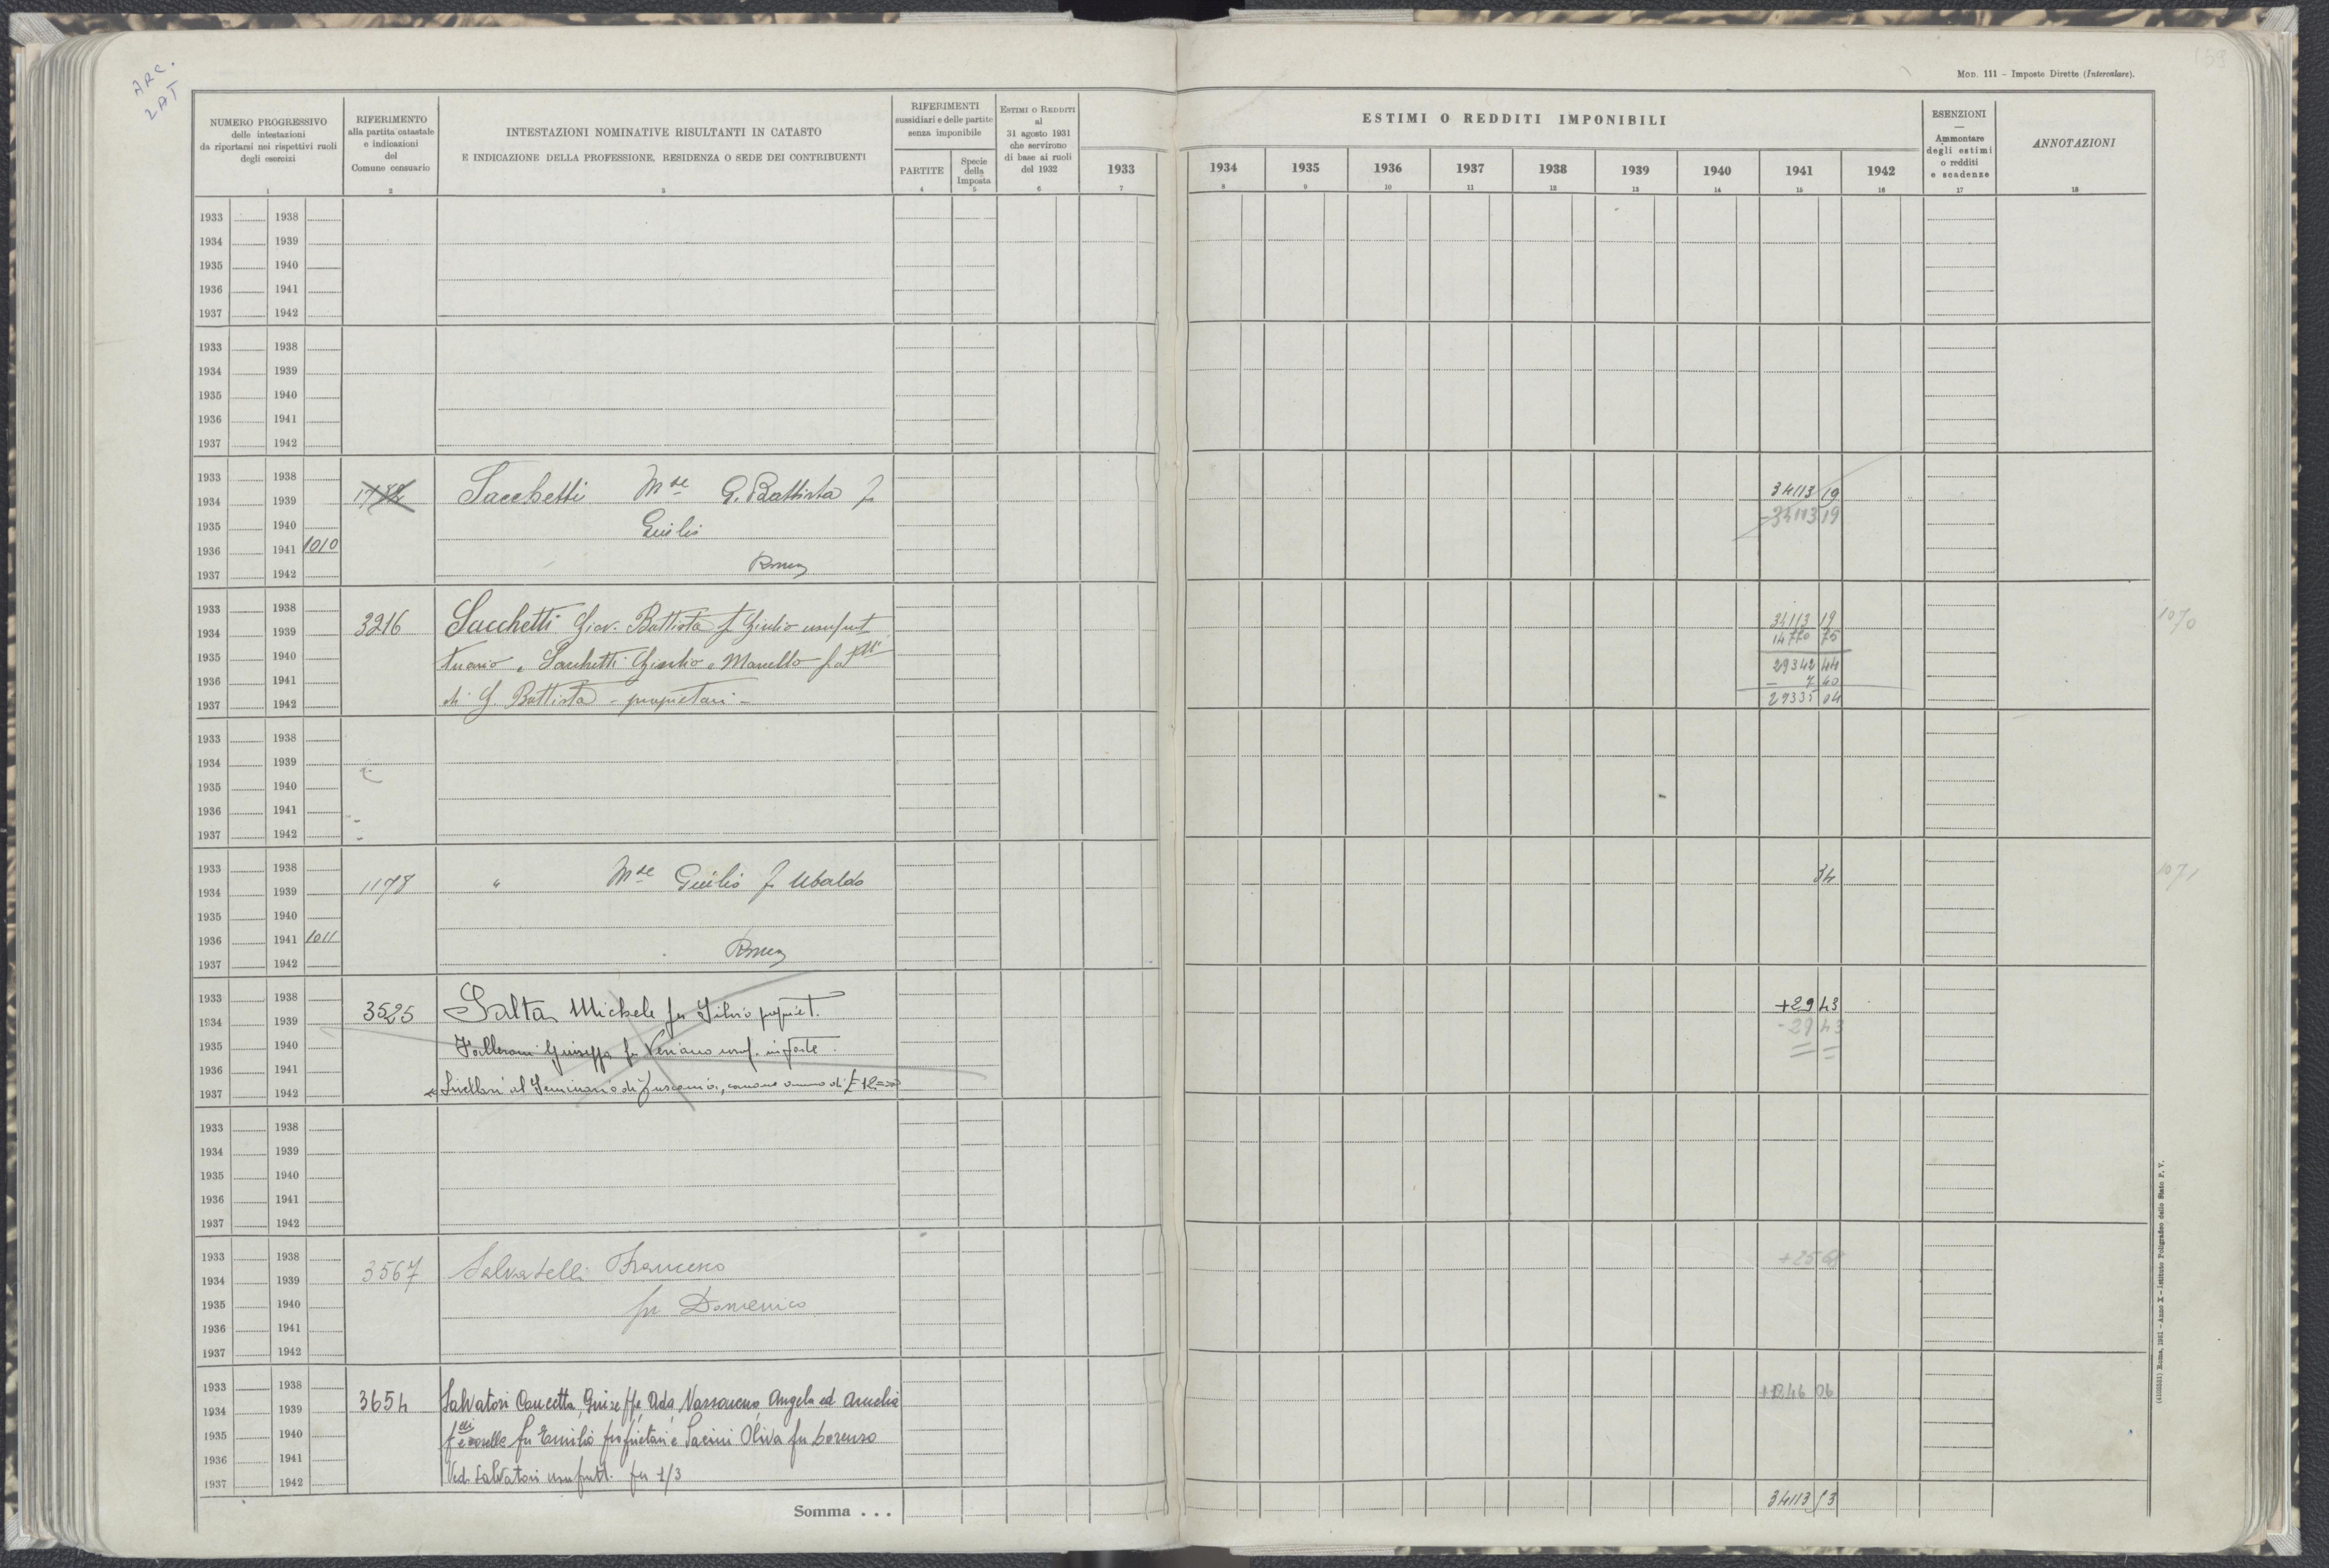 ARC.
LAT
Mod. 111 - Imposte Dirette (Intercalare).
NUMERO PROGRESSIVO
delle intestazioni
da riportarsi nei rispettivi ruoli
degli esercizi
1
RIFERIMENTO
alla partita catastale
e indicazioni
del
Comune censuario
2
INTESTAZIONI NOMINATIVE RISULTANTI IN CATASTO
E INDICAZIONE DELLA PROFESSIONE, RESIDENZA O SEDE DEI CONTRIBUENTI
3
RIFERIMENTI
sussidiari e delle partite
senza imponibile
PARTITE
4
Specie
della
Imposta
5
Estimi o Redditi
al
31 agosto 1931
che servirono
di base ai ruoli
del 1932
6
ESTIMI O REDDITI IMPONIBILI
1933 1934 1935 1936 1937 1938 1939 1940 1941 1942
7 8 9 10 11 12 13 14 15 16
ESENZIONI
Ammontare
degli estimi
o redditi
e scadenze
17
ANNOTAZIONI
18
1933 1938
1934 1939
1935 1940
1936 1941
1937 1942
1933 1938
1934 1939
1935 1940
1936 1941
1937 1942
1933 1938
1934 1939 Sacchetti Mse G. Battista f 34113 19
1935 1940 Giulio -34113 19
1936 1941 1010
1937 1942 Roma
1933 1938 34113 19
1934 1939 3216 Sacchetti Giov. Battista f Giulio usufrut 14770 75
1935 1940 tuario e Sacchetti Giulio e Marcello f.lli 29342 44
1936 1941 - 7 40
1937 1942 di G. Battista - proprietari - 29335 04
1070
1933 1938
1934 1939
1935 1940
1936 1941
1937 1942
1933 1938
1934 1939 1178 " Mse Giulio f Ubaldo 34
1935 1940
1936 1941 1011
1937 1942 Roma
1071
1933 1938
1934 1939 3525 Salta Michele fu Silvio propriet. +29 43
1935 1940 Giuseppa fu usuf. in parte - 29 43
1936 1941
1937 1942 Livellari al Seminario di canone annuo di £ 12
1933 1938
1934 1939
1935 1940
1936 1941
1937 1942
1933 1938
1934 1939 3567 Salvatelli Francesco
1935 1940 fu Domenico
1936 1941
1937 1942
1933 1938
1934 1939 3654 Salvatori Concetta, Giuseppe, Ada, Nazzareno, Angela ed Amelia
1935 1940 f.lli e sorelle fu Emilio proprietari e Oliva fu Lorenzo
1936 1941
1937 1942 Ved. Salvatori usufrutt. per 1/3
Somma . . . 34113
(4103531) Roma, 1931 - Anno X - Istituto Poligrafico dello Stato P. V.